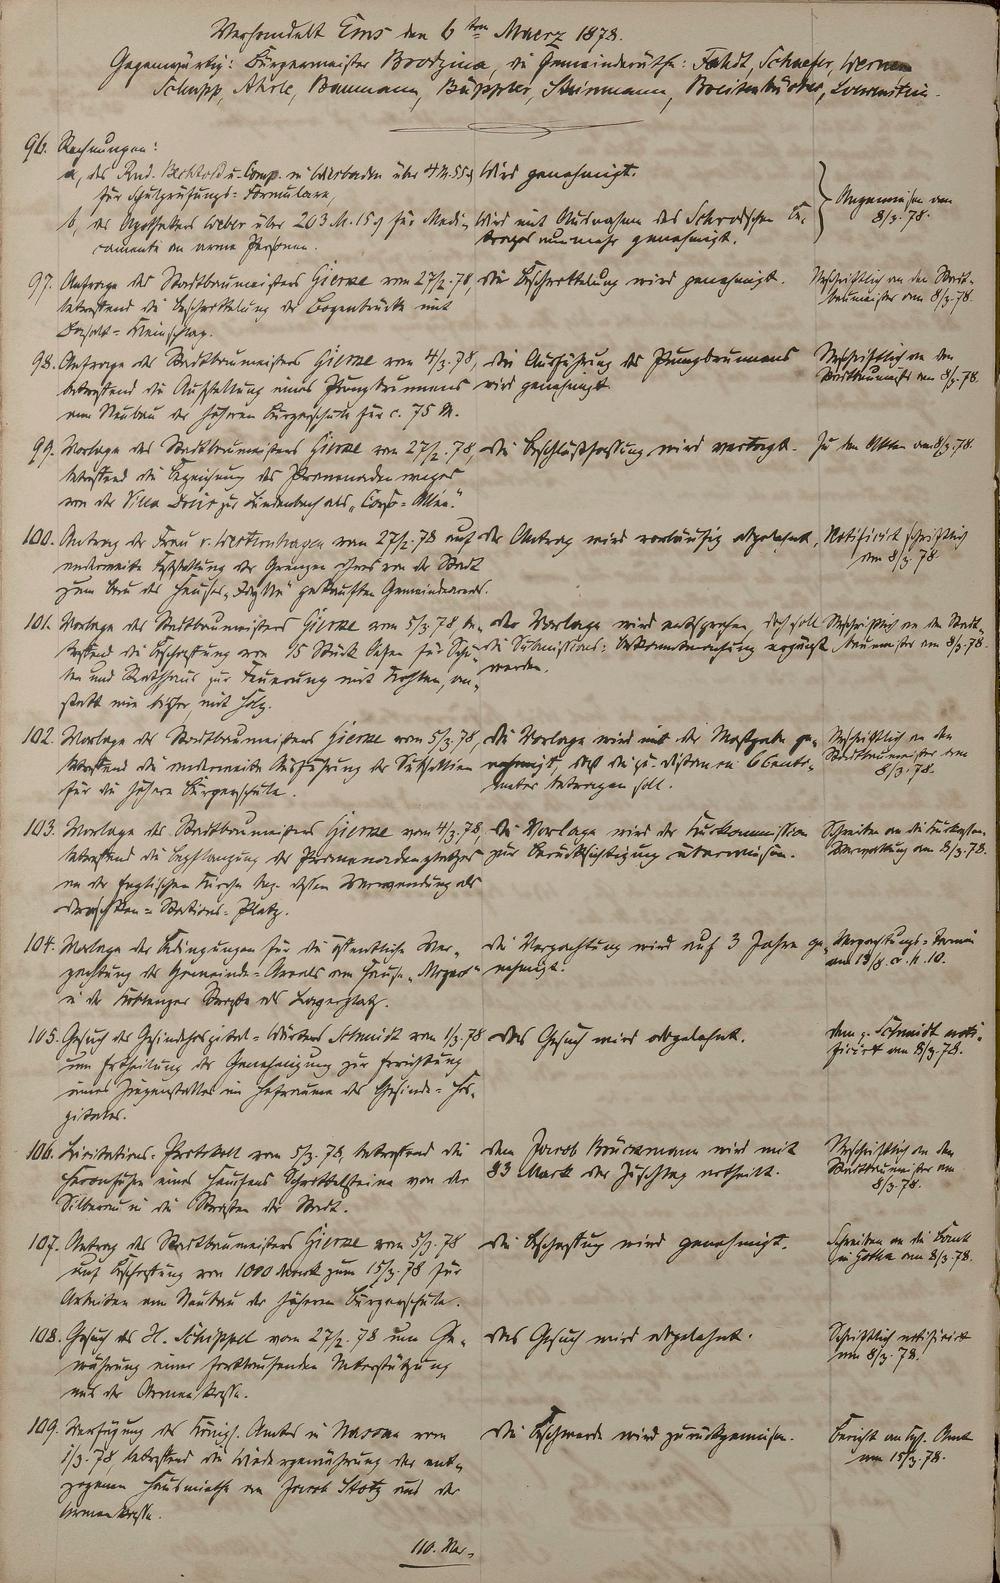 Verhandelt Ems den 6ten Maerz 1878.
Gegenwärtig: Bürgermeister Brodzina, die Gemeinderäthe: Fahdt, Schaefer, Werner
Schupp, Ahrle, Baumann, Büppler, Steinmann, Breitenbücher, Loewenstein.
96. Rechnungen:
a, des Rud. Bechtold u. Comp. in Wiesbaden über 4 M. 55 ₰
für Schulprüfungs-Formulare,
Wird genehmigt.
b, des Apothekers Weber über 203 M. 15 ₰ für Medi-
camente an arme Personen.
Wird mit Ausnahme des Schrodschen Be-
trages nunmehr genehmigt.
Angewiesen am
8/3. 78.
97. Anfrage des Stadtbaumeisters Gierne vom 27/2. 78,
betreffend die Beschotterung der Bogenbrücke mit
Basalt-Kleinschlag.
Die Beschotterung wird genehmigt.
Abschriftlich an den Stadt-
baumeister am 8/3. 78.
98. Anfrage des Stadtbaumeisters Gierne vom 4/3. 78,
betreffend die Aufstellung eines Pumpbrunnens
am Neubau der höheren Bürgerschule für c. 75 M.
Die Ausführung des Pumpbrunnens
wird genehmigt.
Abschriftlich an den
Stadtbaumeister am 8/3. 78.
99. Vorlage des Stadtbaumeisters Gierne vom 27/2. 78,
betreffend die Bezeichnung des Promenadenweges
von der Villa zur Lindenbach als „Corso-Allee“.
Die Beschlußfassung wird vertagt.
Zu den Akten am 8/3. 78.
100. Antrag der Frau v. Westernhagen vom 27/2. 78 auf
anderweite Feststellung der Grenzen ihres von der Stadt
zum Bau des Hauses gekauften Gemeindeareals.
Der Antrag wird vorläufig abgelehnt,
Notificirt schriftlich
am 8/3. 78
101. Vorlage des Stadtbaumeisters Gierne vom 5/3. 78 be-
treffend die Beschaffung von 15 Stück Oefen für Schu-
len und Rathhaus zur Feuerung mit Kohlen, an-
statt wie bisher, mit Holz.
Der Vorlage wird entsprochen, doch soll
die Submissions-Bekanntmachung ergänzt
werden.
Abschriftlich an den Stadt-
baumeister am 8/3. 78.
102. Vorlage des Stadtbaumeisters Gierne vom 5/3. 78,
betreffend die anderweite Ausführung der Subsellien
für die höhere Bürgerschule.
Die Vorlage wird mit der Maßgabe ge-
nehmigt, daß die qu. Distance 6 Centi-
meter betragen soll.
Abschriftlich an den
Stadtbaumeister am
8/3. 78.
103. Vorlage des Stadtbaumeisters Gierne vom 4/3. 78,
betreffend die Bepflanzung des Promenadenplatzes
an der Englischen Kirche bez. dessen Verwendung als
Droschken-Stations-Platz.
Die Vorlage wird der Kurkommission
zur Berücksichtigung überwiesen.
Schreiben an die Kurkassen-
Verwaltung am 8/3. 78.
104. Vorlage der Bedingungen für die öffentliche Ver-
pachtung des Gemeinde-Areals am Hause „Mozart“
in der Koblenzer Straße als Lagerplatz.
Die Verpachtung wird auf 3 Jahre ge-
nehmigt.
Verpachtungs-Termin
am 13/3. c. h. 10.
105. Gesuch des Gesindehospital-Wärters Schmidt vom 1/3. 78
um Ertheilung der Genehmigung zur Errichtung
eines Ziegenstalles im Hofraume des Gesinde-Hos-
pitales.
Das Gesuch wird abgelehnt.
Dem p. Schmidt noti-
ficirt am 8/3. 78.
106. Licitations-Protokoll vom 5/3. 78, betreffend die
Heranfuhr eines Haufens Schrottelsteine von der
Silberau in die Straßen der Stadt.
Dem Jacob Brückmann wird mit
83 Mark der Zuschlag ertheilt.
Abschriftlich an den
Stadtbaumeister am
8/3. 78.
107. Antrag des Stadtbaumeisters Gierne vom 5/3. 78
auf Beschaffung von 1000 Mark zum 15/3. 78 für
Arbeiten am Neubau der höheren Bürgerschule.
Die Beschaffung wird genehmigt.
Schreiben an die Bank
in Gotha am 8/3. 78.
108. Gesuch des H. Schippel vom 27/2. 78 um Ge-
währung einer fortlaufenden Unterstützung
aus der Armenkasse.
Das Gesuch wird abgelehnt.
Schriftlich notificirt
am 8/3. 78.
109. Verfügung des Königl. Amtes in Nassau vom
1/3. 78 betreffend die Wiedergewährung der ent-
zogenen Hausmiethe an Jacob Stotz aus der
Armenkasse.
Die Beschwerde wird zurückgewiesen.
Bericht an Kgl. Amt
am 15/3. 78.
110. Ver-